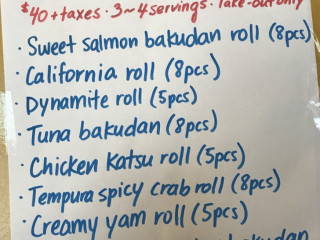 $40 + taxes · 3~4 servings · Take-out only
· Sweet salmon bakudan roll (8pcs)
· California roll (8pcs)
· Dynamite roll (5pcs)
· Tuna bakudan (8pcs)
· Chicken Katsu roll (5pcs)
· Tempura spicy crab roll (8pcs)
· Creamy yam roll (5pcs)
bakudan